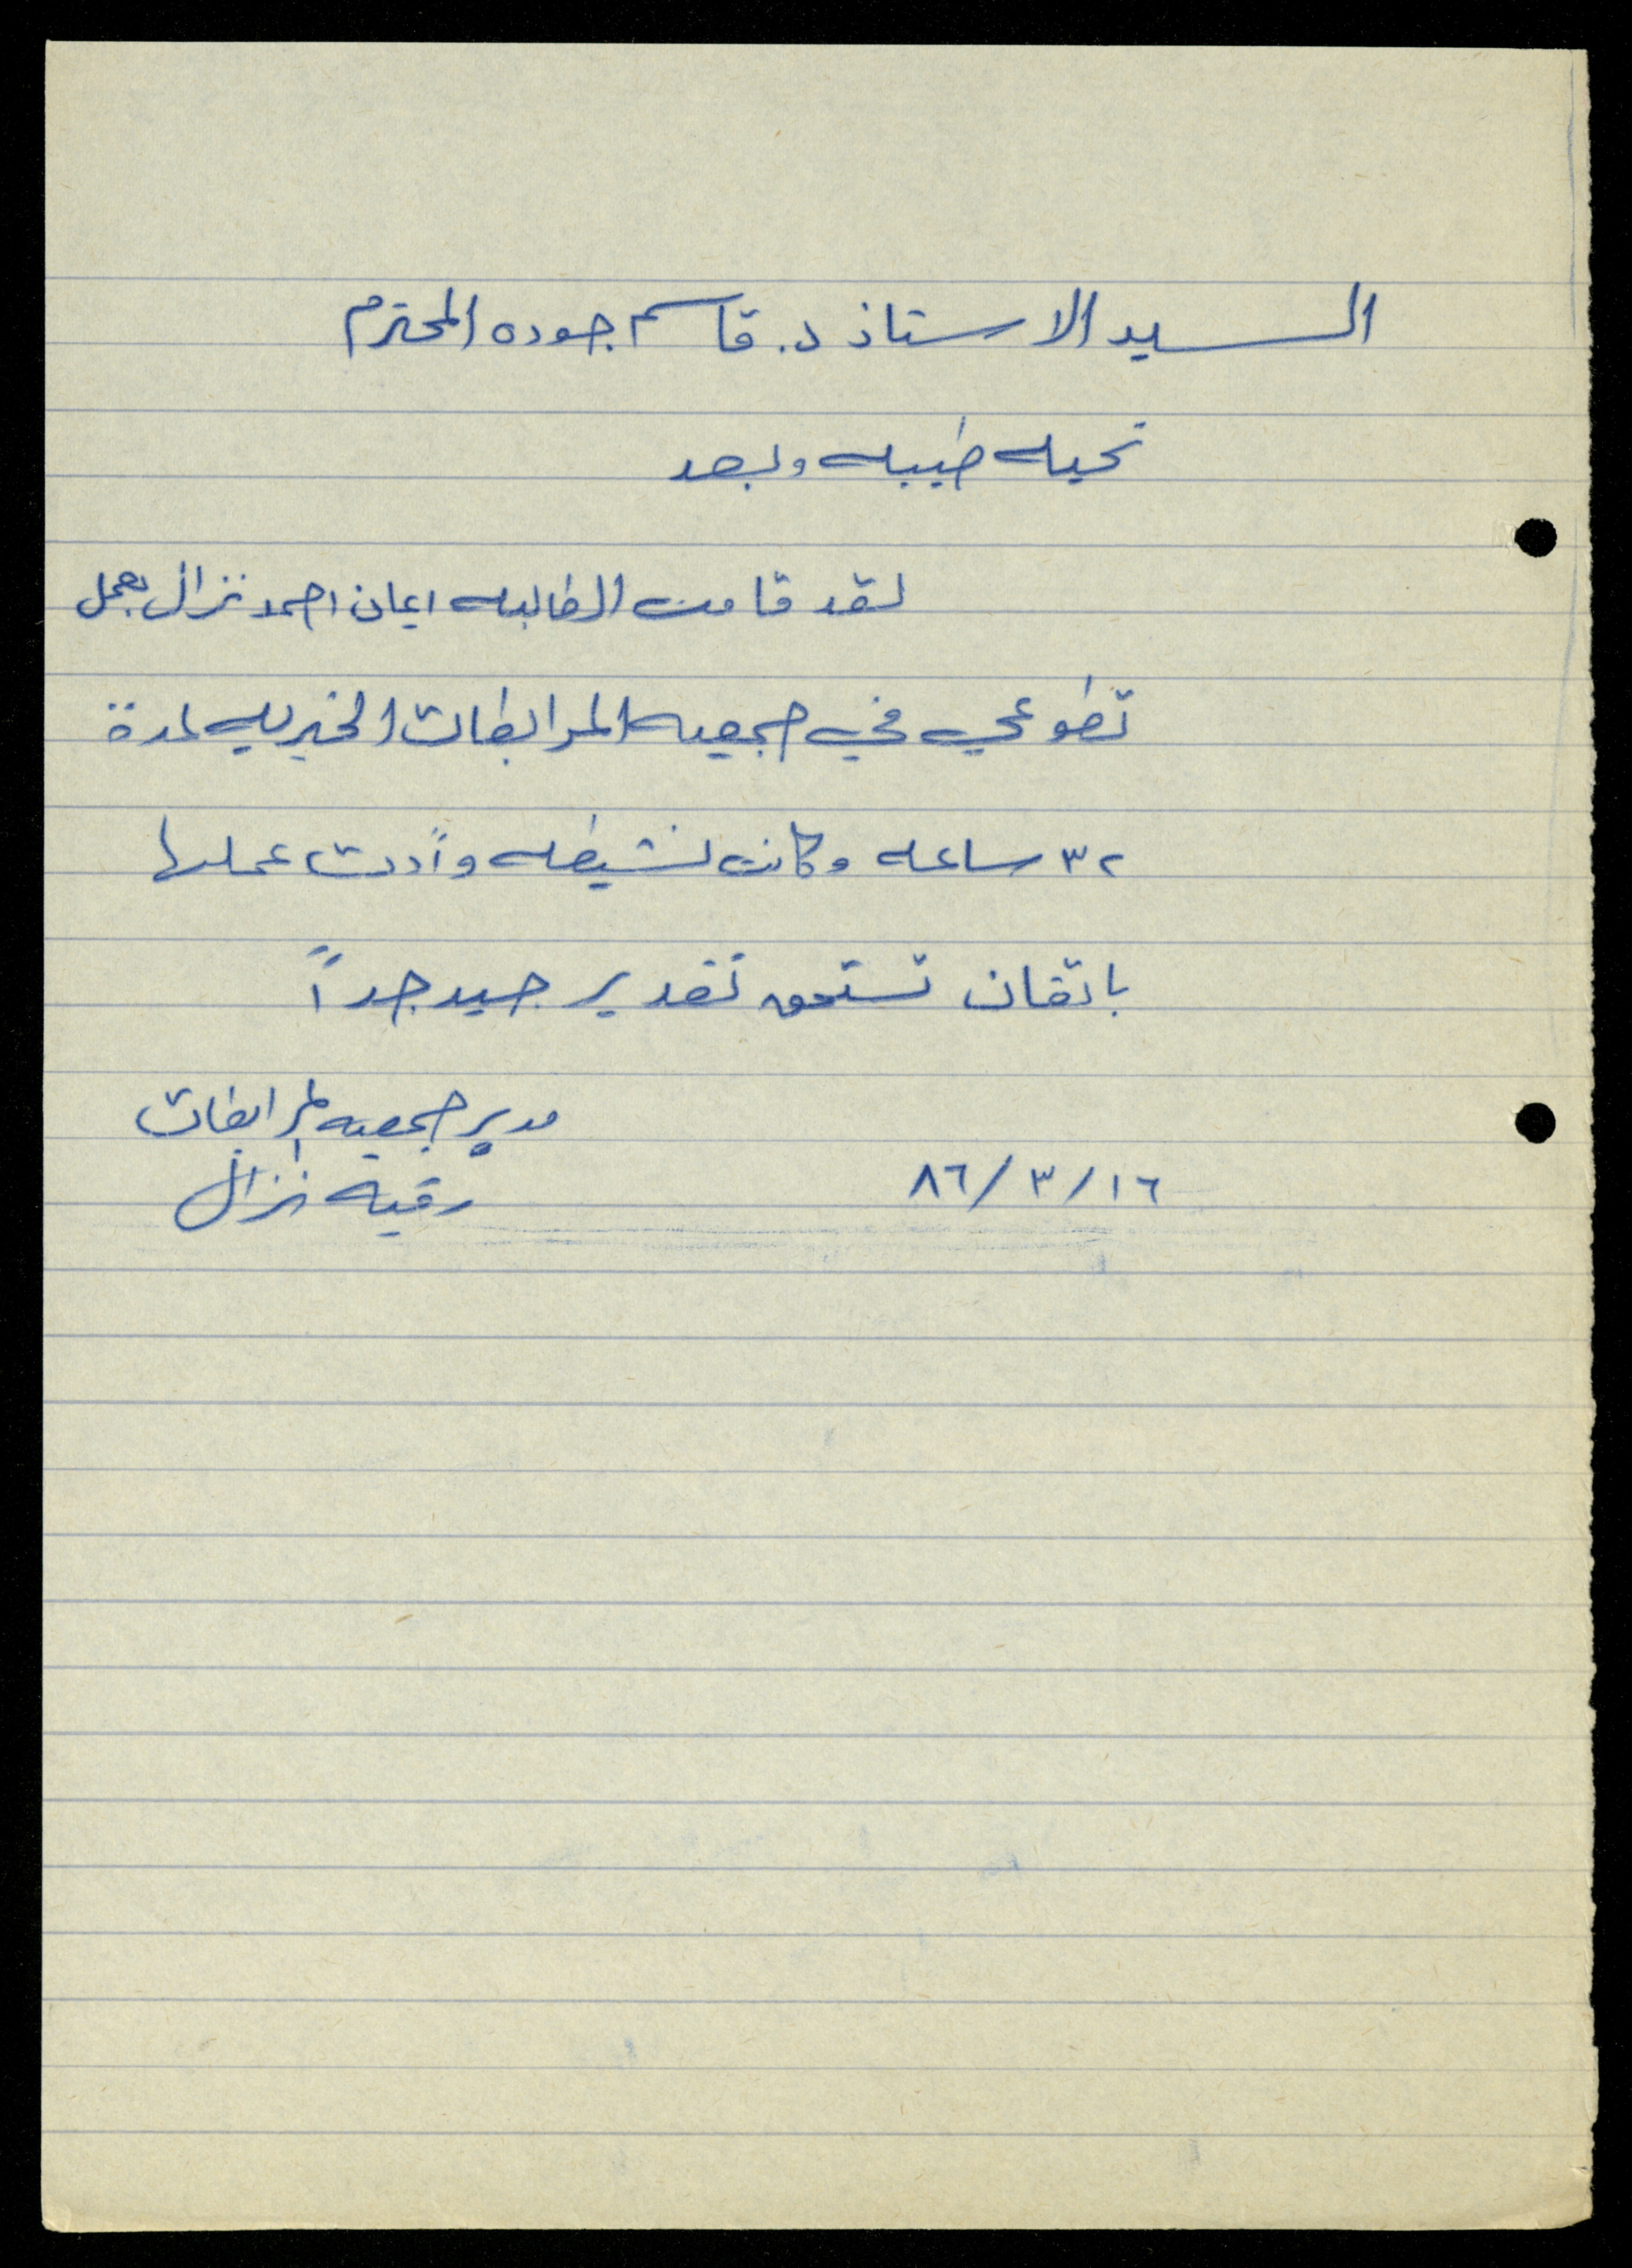 السيد الاستاذ د. قاسم جوده المحترم
تحيه طيبه وبعد
لقد قامت الطالبه ايمان احمد نزال بعمل
تطوعي في جمعيه المرابطات الخيريه لمدة
٣٢ ساعه وكانت نشيطه وأدت عملها
باتقان تستحق تقدير جيد جداً
مدير جمعيه المرابطات
٨٦/٣/١٦ رقيه نزال